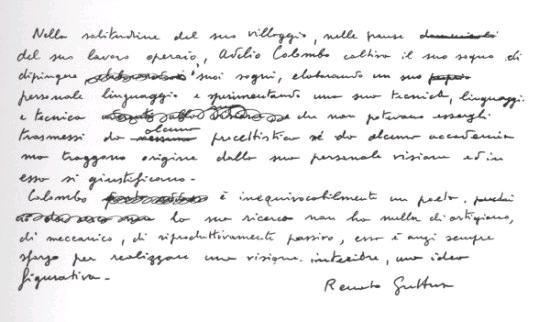 Nella solitudine del suo villaggio, nelle pause
del suo lavoro operaio, Adelio Colombo coltiva il suo sogno di
dipingere i suoi sogni, elaborando un suo
personale linguaggio e sperimentando una sua tecnica, linguaggio
e tecnica che non potevano essergli
trasmessi da alcuna precettistica né da alcuna accademia
ma traggono origine dalla sua personale visione ed in
essa si giustificano.
Colombo è inequivocabilmente un poeta.
la sua ricerca non ha nulla di artigiano,
di meccanico, di riproduttivamente passivo, essa è anzi sempre
sforzo per realizzare una visione interiore, una idea
figurativa.
Renato Guttuso